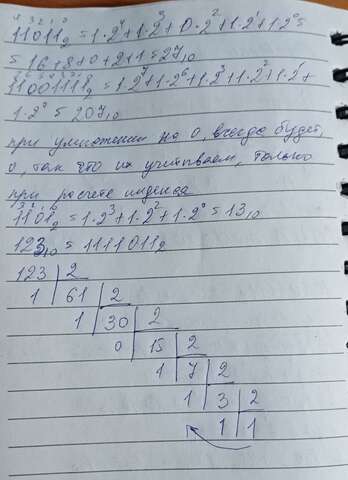 4 3 2 1 0
11011₂ = 1·2⁴+1·2³+0·2²+1·2¹+1·2⁰=
= 16+8+0+2+1=27₁₀
7 6 5 4 3 2 1 0
11001111₂ = 1·2⁷+1·2⁶+1·2³+1·2²+1·2¹+
1·2⁰ = 207₁₀
при умножении на 0 всегда будет
0, так что их учитываем, только
при расчете индекса
3 2 1 0
1101₂ = 1·2³+1·2²+1·2⁰ = 13₁₀
123₁₀ = 1111011₂
123 2
1 61 2
1 30 2
0 15 2
1 7 2
1 3 2
1 1